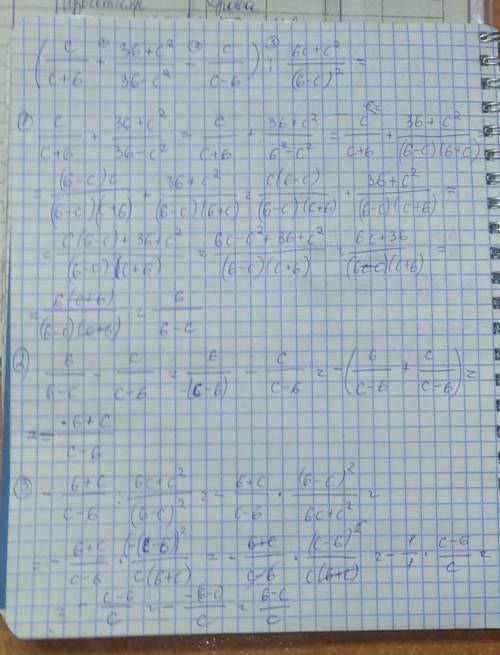 ( c/(c+6) + (36+c²)/(36-c²) - c/(c-6) ) : (6c+c²)/(6-c)² =
1) c/(c+6) + (36+c²)/(36-c²) = c/(c+6) + (36+c²)/(6²-c²) = c/(c+6) + (36+c²)/((6-c)(6+c))
= (6-c)c/((6-c)(c+6)) + (36+c²)/((6-c)(6+c)) = c(6-c)/((6-c)(c+6)) + (36+c²)/((6-c)(c+6)) =
= (c(6-c)+36+c²)/((6-c)(c+6)) = (6c-c²+36+c²)/((6-c)(c+6)) = (6c+36)/((6-c)(c+6)) =
= 6(c+6)/((6-c)(c+6)) = 6/(6-c)
2) 6/(6-c) - c/(c-6) = 6/-(c-6) - c/(c-6) = -(6/(c-6) + c/(c-6)) =
= - (6+c)/(c-6)
3) - (6+c)/(c-6) : (6c+c²)/(6-c)² = - (6+c)/(c-6) · (6-c)²/(6c+c²) =
= - (6+c)/(c-6) · (-(c-6))²/(c(6+c)) = - (6+c)/(c-6) · (c-6)²/(c(6+c)) = - 1/1 · (c-6)/c =
= - (c-6)/c = - -(6-c)/c = (6-c)/c